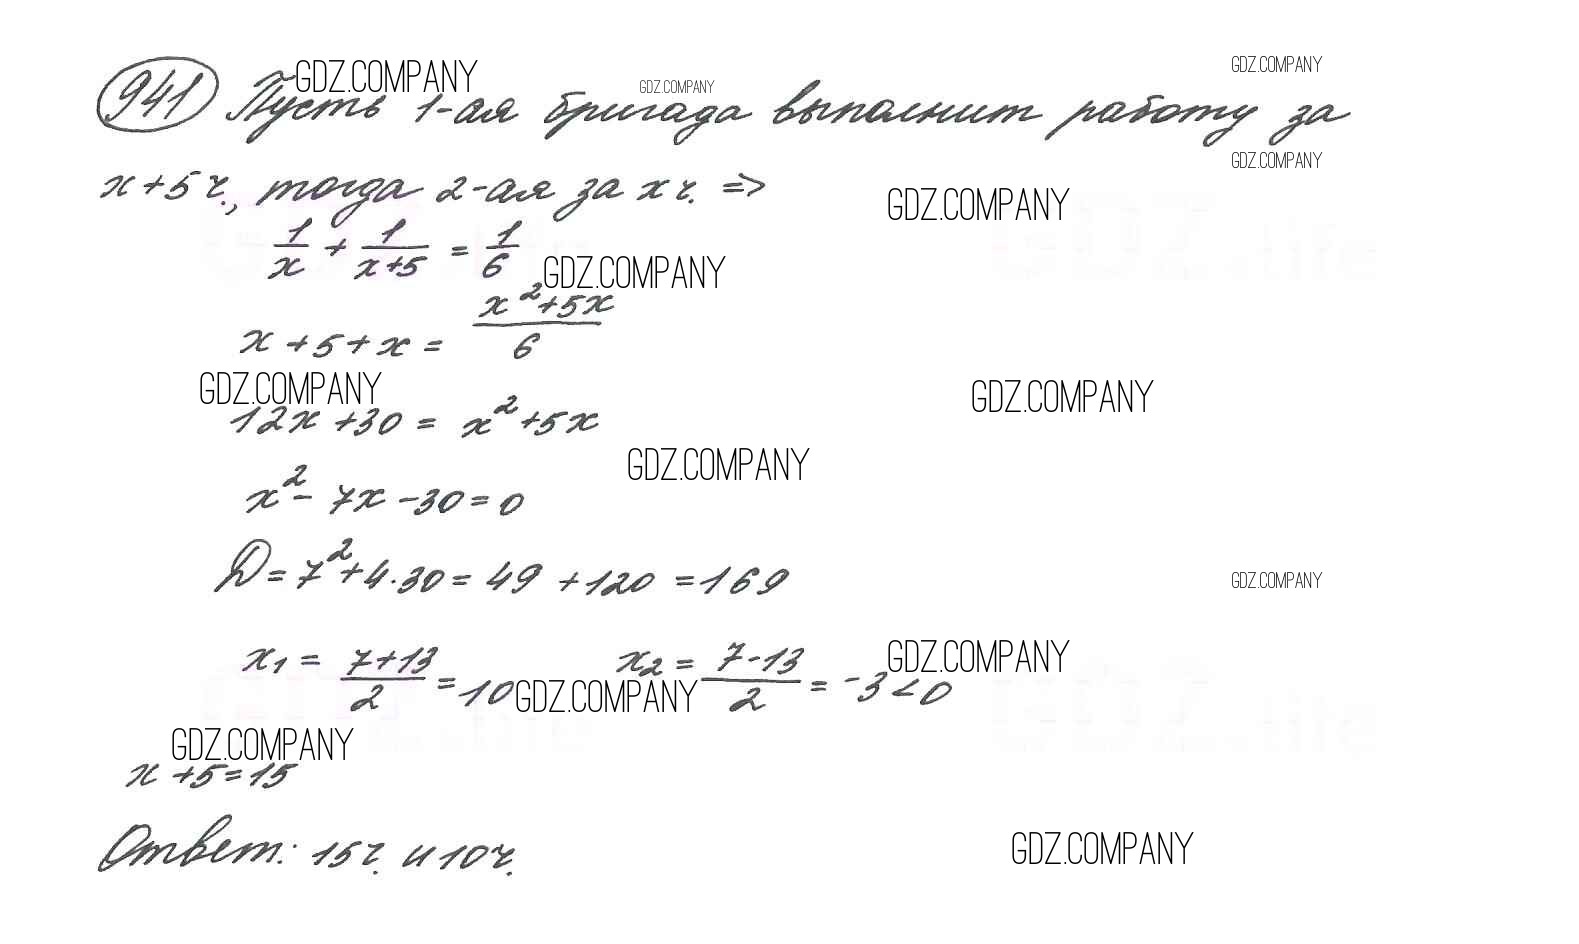 941 Пусть 1-ая бригада выполнит работу за
GDZ.COMPANY GDZ.COMPANY GDZ.COMPANY
GDZ.COMPANY
x+5 ч., тогда 2-ая за x ч. =>
GDZ.COMPANY
1/x + 1/(x+5) = 1/6
GDZ.COMPANY
x+5+x = (x²+5x)/6
GDZ.COMPANY GDZ.COMPANY
12x+30 = x²+5x
GDZ.COMPANY
x²-7x-30=0
D=7²+4·30=49+120=169
GDZ.COMPANY
x₁ = (7+13)/2 = 10 x₂ = (7-13)/2 = -3<0
GDZ.COMPANY GDZ.COMPANY
GDZ.COMPANY
x+5=15
Ответ: 15ч. и 10ч.
GDZ.COMPANY